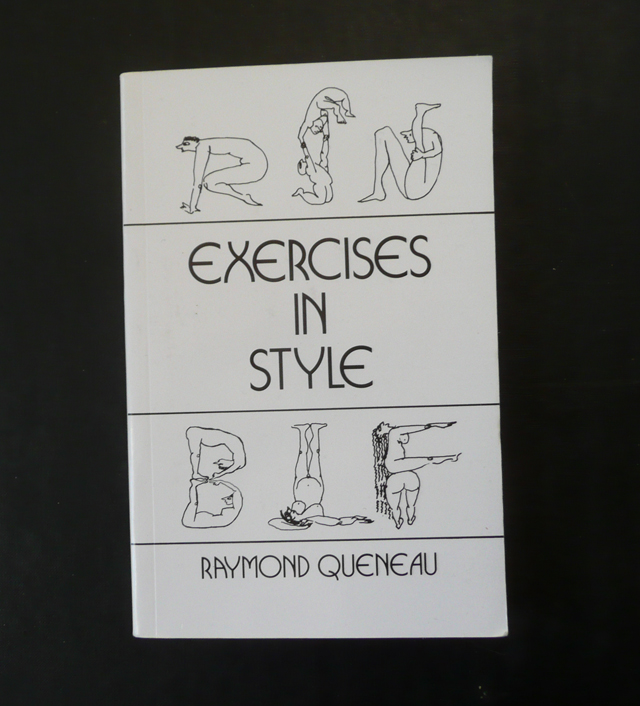 RSN
EXERCISES
IN
STYLE
BLF
RAYMOND QUENEAU